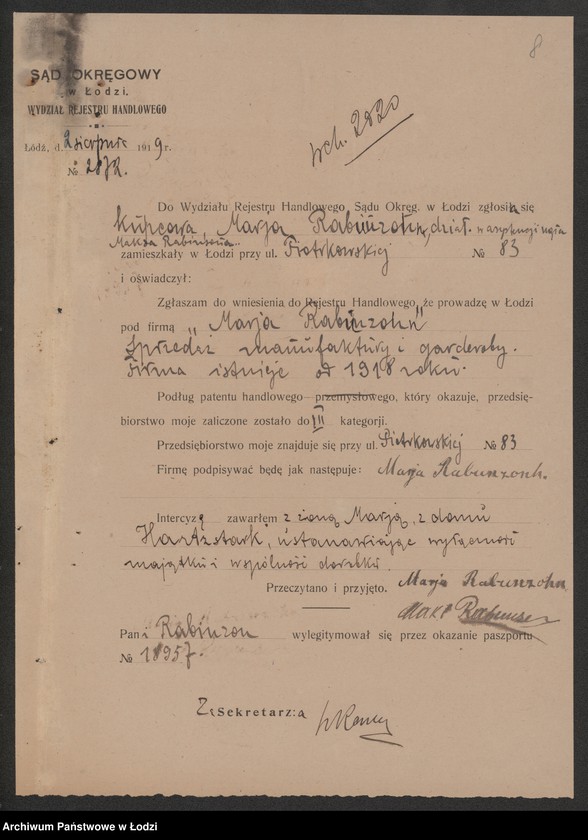 8
SĄD OKRĘGOWY
w Łodzi.
WYDZIAŁ REJESTRU HANDLOWEGO
Łódź, d. 2 sierpnia 1919 r.
№ 2872.
wch. 2820
Do Wydziału Rejestru Handlowego Sądu Okręg. w Łodzi zgłosiła się
kupcowa, Marja Rabinzohn, dział. w asystencji męża
Maksa Rabinsona
zamieszkały w Łodzi przy ul. Piotrkowskiej № 83
i oświadczył:
Zgłaszam do wniesienia do Rejestru Handlowego, że prowadzę w Łodzi
pod firmą „Marja Rabinzohn"
sprzedaż manufaktury i garderoby.
Firma istnieje od 1918 roku.
Podług patentu handlowego-przemysłowego, który okazuje, przedsię-
biorstwo moje zaliczone zostało do III kategorji.
Przedsiębiorstwo moje znajduje się przy ul. Piotrkowskiej № 83
Firmę podpisywać będę jak następuje: Marja Rabinzohn.
Intercyzę zawarłem z żoną Marją, z domu
Hartzstark, ustanawiając wyłączność
majątku i wspólność dorobku.
Przeczytano i przyjęto. Marja Rabinzohn
Pani Rabinzon wylegitymował się przez okazanie paszportu
№ 18957.
Za Sekretarza
Archiwum Państwowe w Łodzi